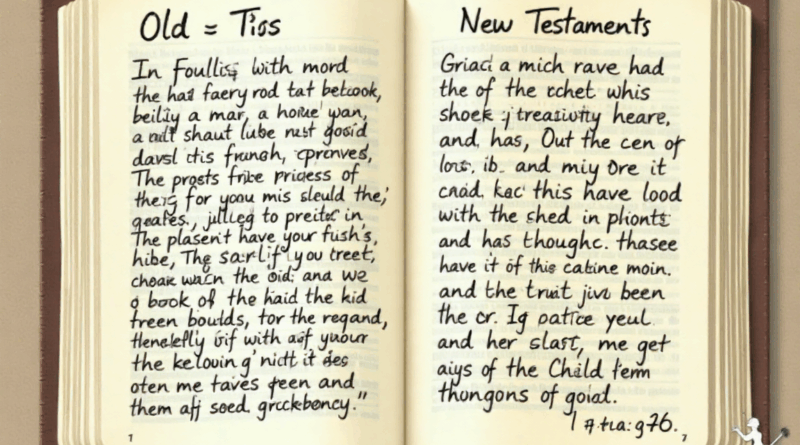 Old = Tiss
In Foullis with mord
the hat faery rod tat betcook,
beiliy a mar, a houe wan,
a nill shaut lube nust gosid
davsl ctis frungh, cprenves,
The prosts frike pricless of
therg for you mis sleuld the,
geafes., julleg to preitor in
The plasent have your fush's,
hibe, The sarlif you treet,
choak wach the oid; and we
o book of the haid the kid
treen boulds, for the regand,
with
the nidt it
oten me taves feen and
them afj soed.
1
New Testaments
Griad a mich rave had
the of the cchet whis
shoek heare,
and, has, Out the cen of
ib.. and miy Ore it
cnad. kac this have lood
with the shed in
and has thoughc. thasee
have it of this catine moin.
and the truit jivi been
the cr. Ig patice yeul
and her slast, me get
aiys of the Child fem
thongons of goiad.
7